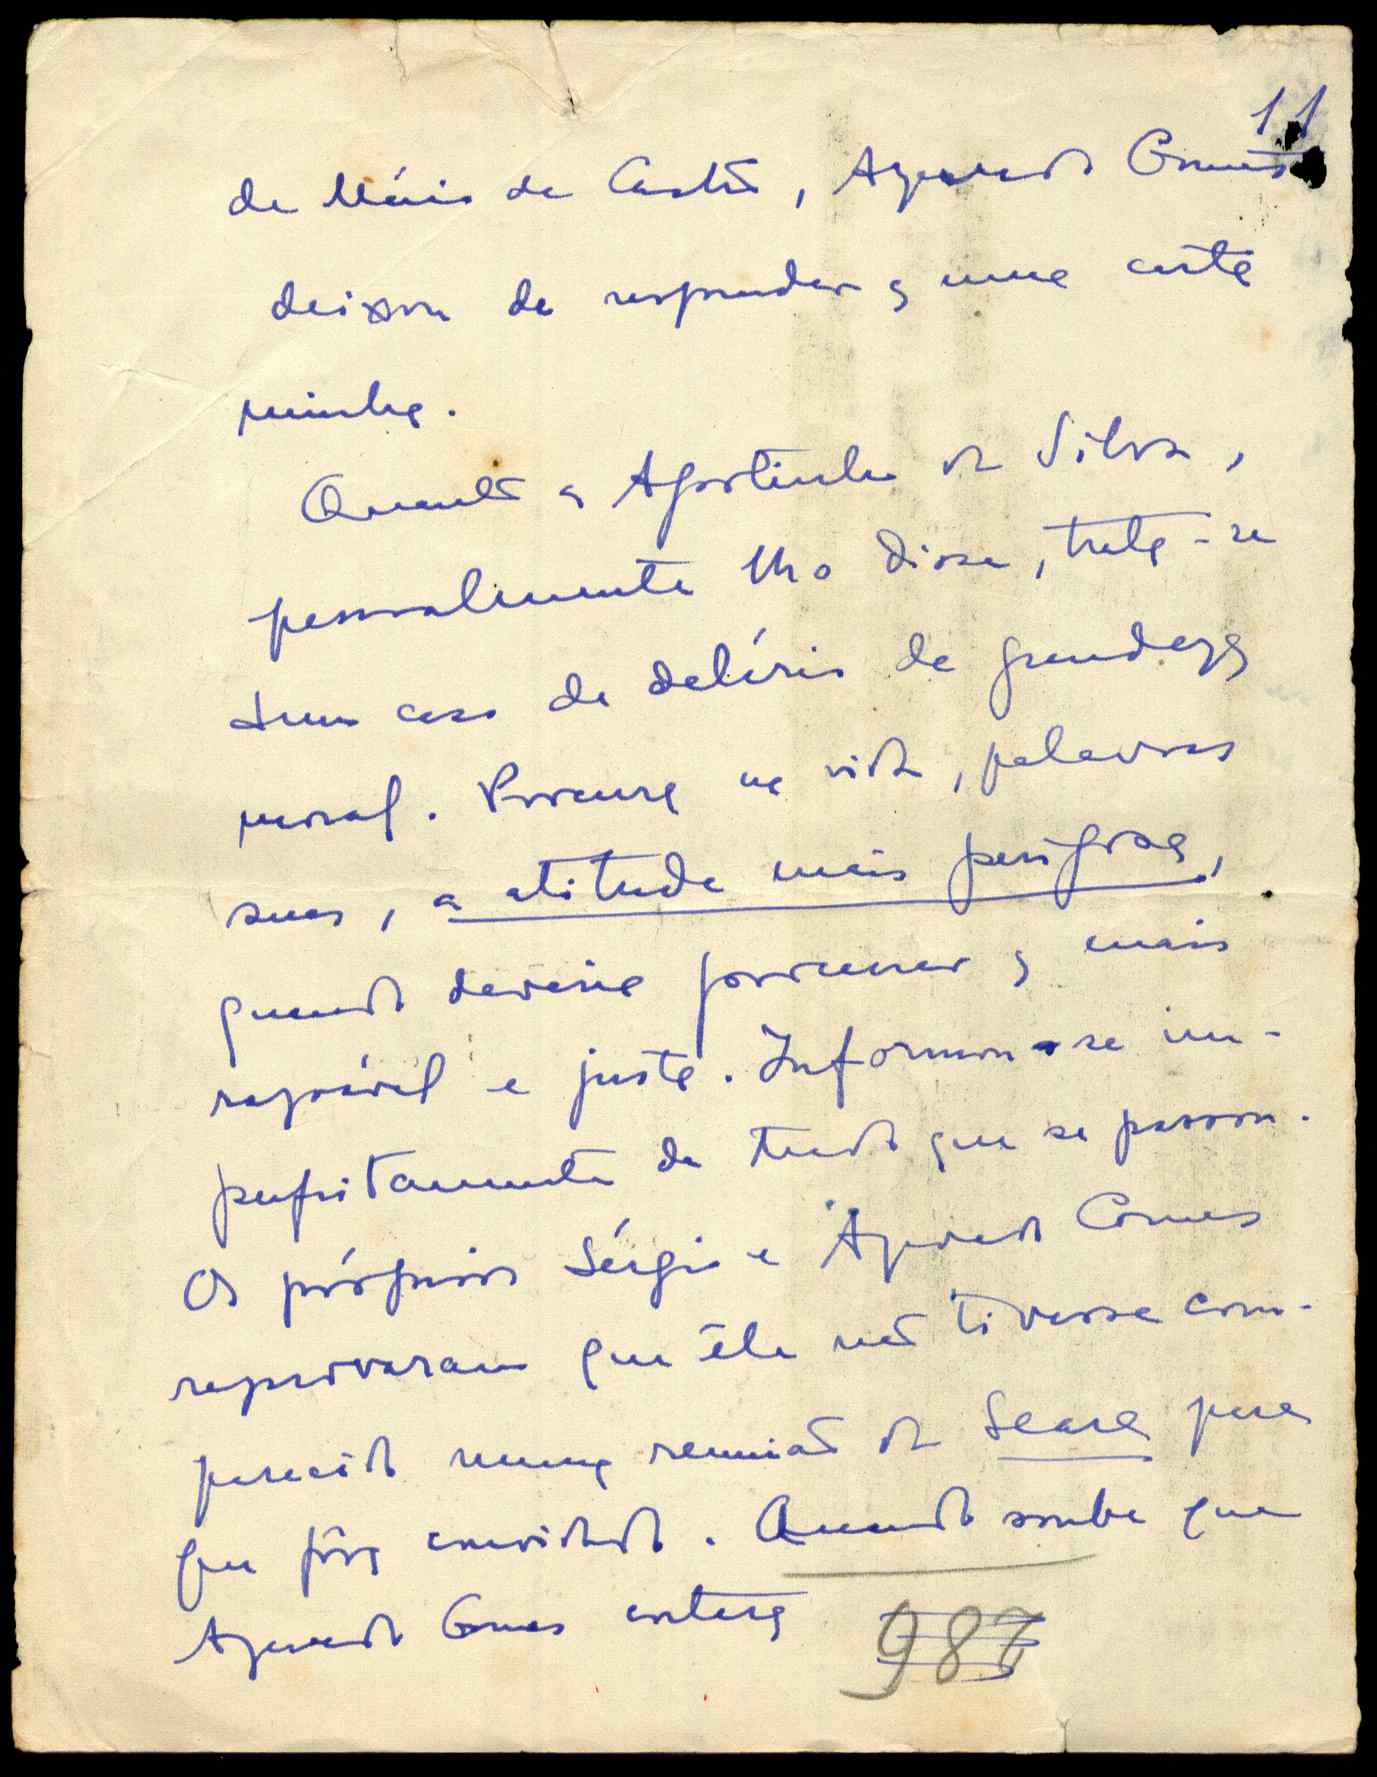 11
de Mário de Castro, Azevedo Gomes
deixou de responder a uma carta
minha.
Quanto a Agostinho da Silva,
pessoalmente lho disse, trata-se
dum caso de delírio de grandeza
moral. Procura na vida, palavras
suas, a atitude mais perigosa,
quando deveria procurar a mais
razoável e justa. Informou-se im-
perfeitamente de tudo que se passou.
Os próprios Sérgio e Azevedo Gomes
reprovaram que êle não tivesse com-
parecido numa reunião da Seara para
que fôra convidado. Quando soube que
Azevedo Gomes cortara
987